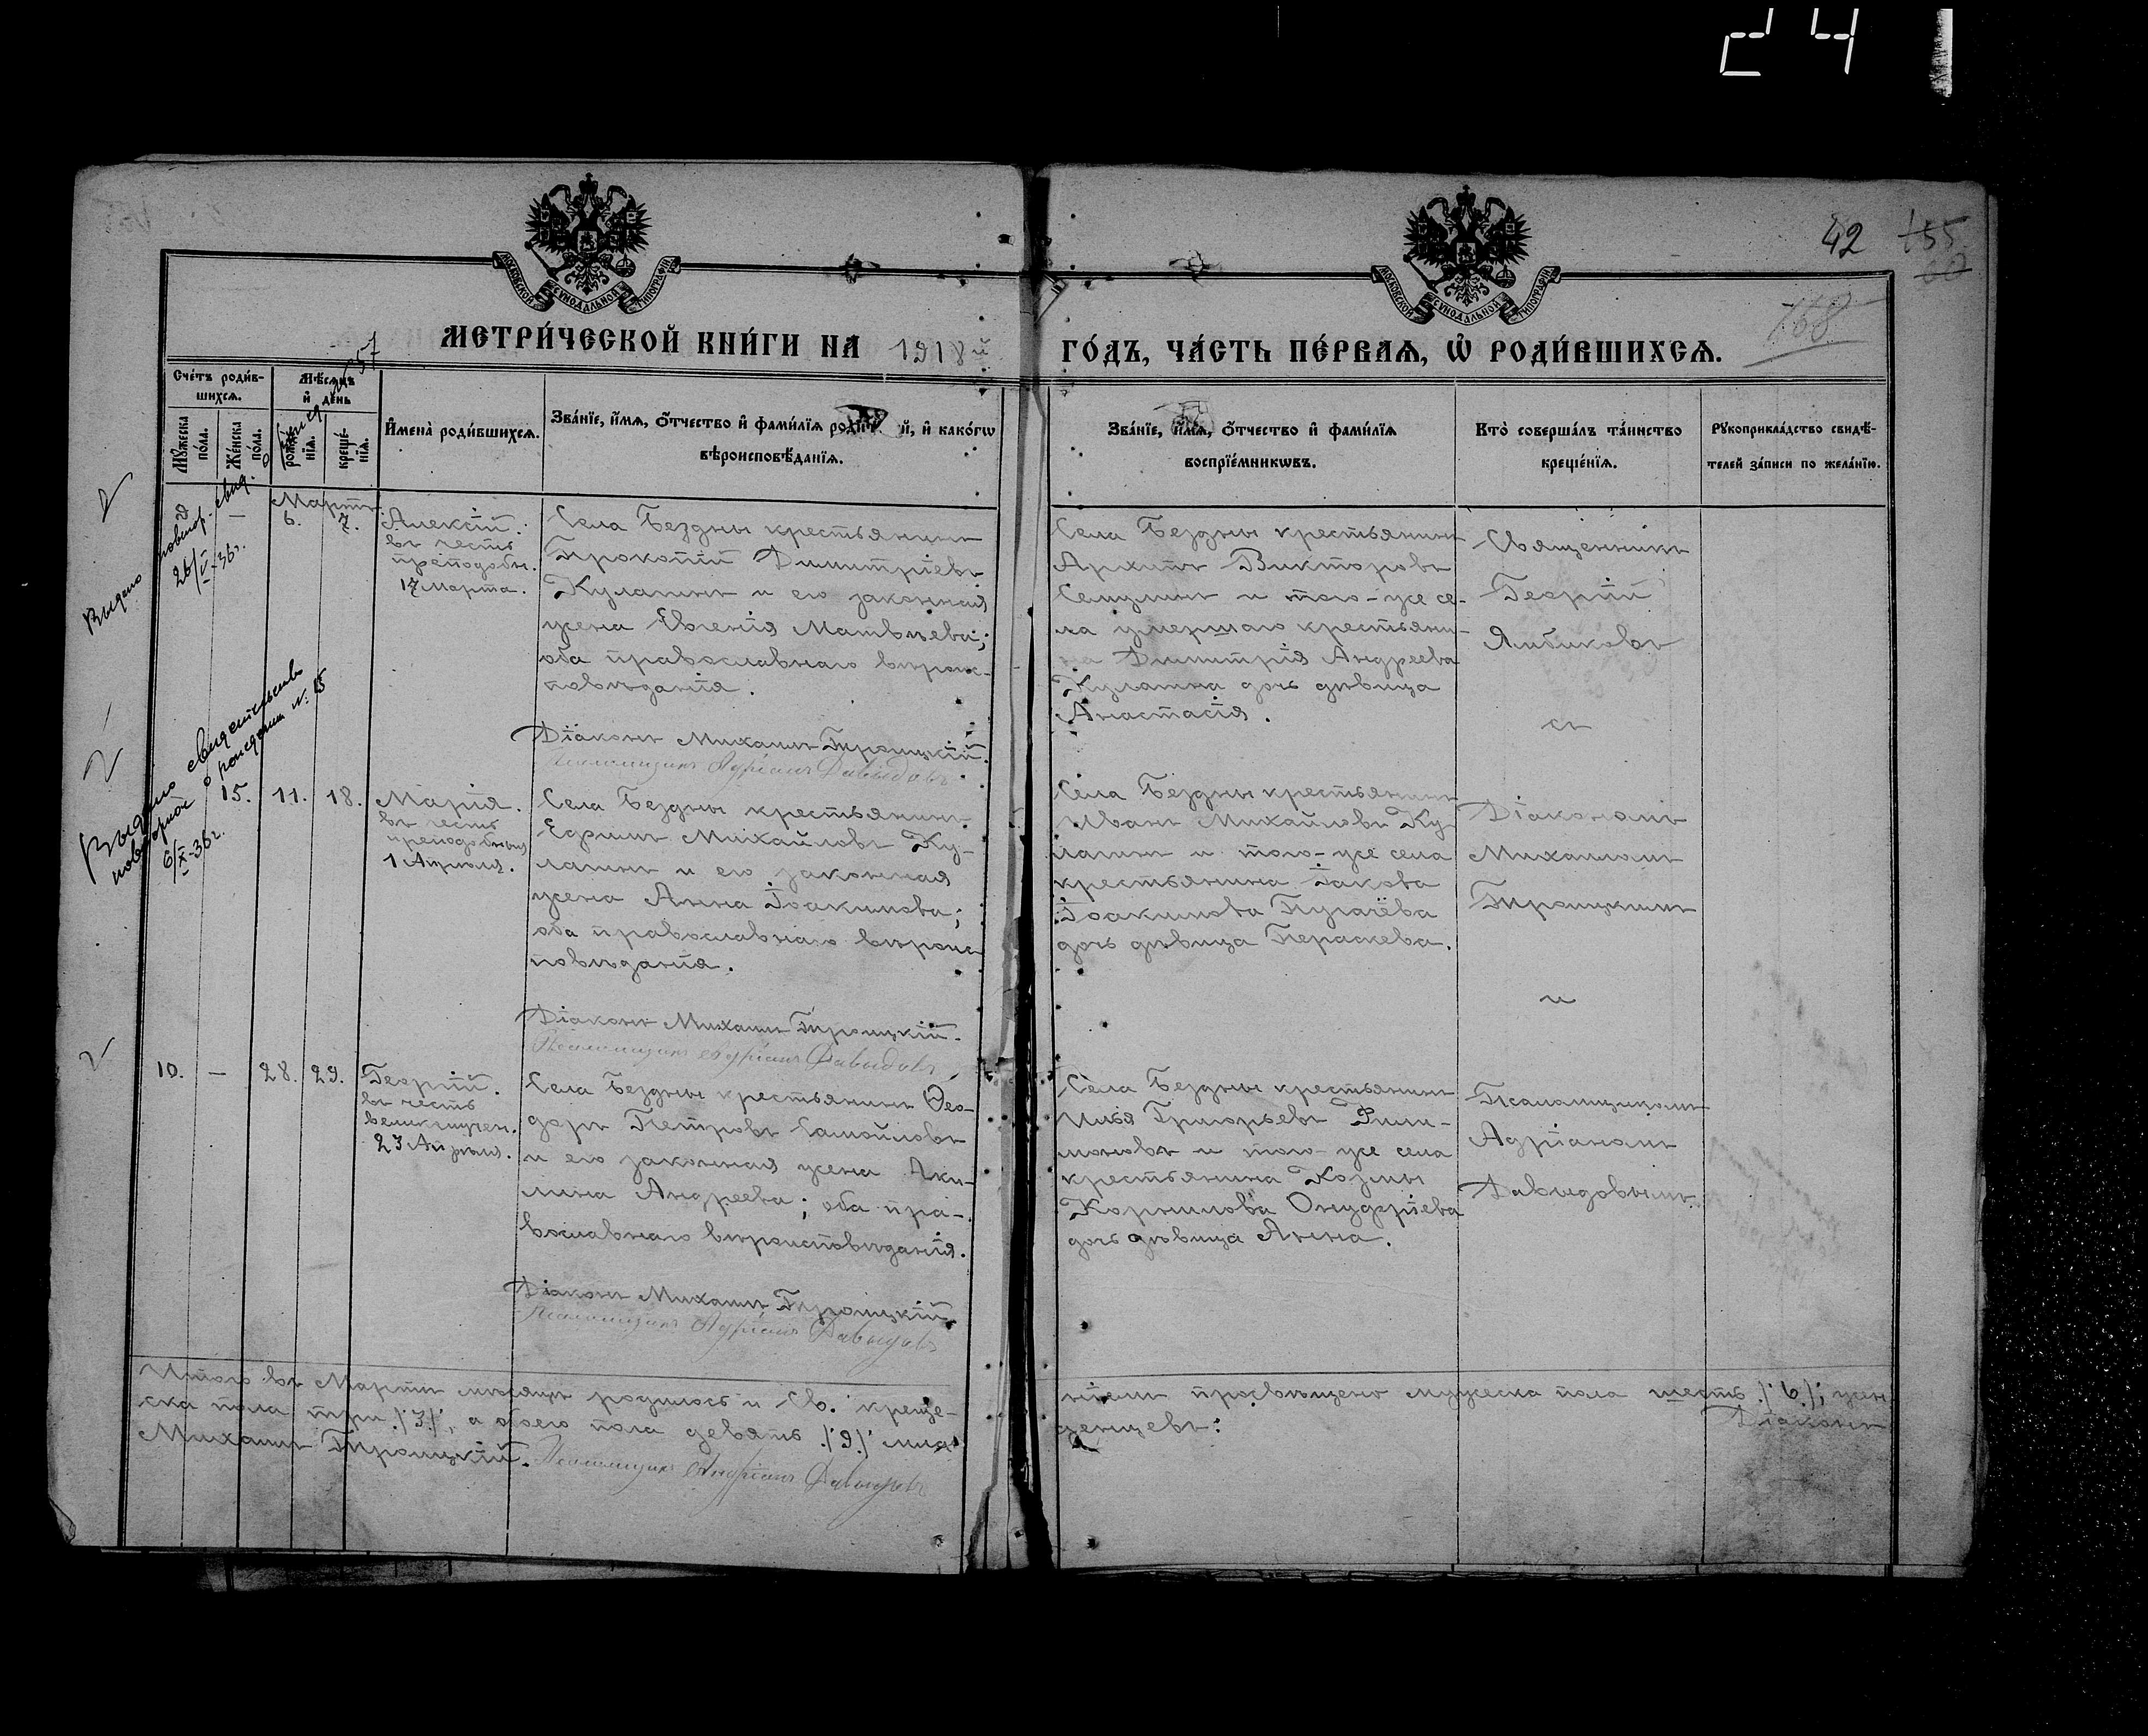 24
42 155
60
168
МОСКОВСКОЙ СѴНОДАЛЬНОЙ ТИПОГРАФІИ
МОСКОВСКОЙ СѴНОДАЛЬНОЙ ТИПОГРАФІИ
МЕТРИ́ЧЕСКОЙ КНИ́ГИ НА 1918й ГО́ДЪ, ЧА́СТЬ ПЕ́РВАѦ, Ѡ҆ РОДИ́ВШИХСѦ.
Сче́тъ роди́в-
шихсѧ.
Мꙋ́жеска по́ла.
Же́нска по́ла.
Мѣ́сѧцъ
и҆ де́нь
рожде́нїѧ.
креще́-
нїѧ.
И҆мена̀ роди́вшихсѧ.
Зва́нїе, и҆́мѧ, ѻ҆́тчество и҆ фами́лїѧ роди́т й, и҆ како́гѡ
вѣроисповѣ́данїѧ.
Зва́нїе, и҆́мѧ, ѻ҆́тчество и҆ фами́лїѧ
воспрїе́мникѡвъ.
Кто̀ соверша́лъ та́инство
креще́нїѧ.
Рꙋкоприкла́дство свидѣ́-
телей за́писи по жела́нїю.
Выдано повтор. свид. о 57
26/V-36г.
Мартъ.
9 — 6. 7.
Алексій:
въ честь
преподобн.
17 Марта.
Села Бездны крестьянинъ
Прокопій Димитріевъ
Кулагинъ и его законная
жена Евгенія Матвѣева;
оба православнаго вѣроис-
повѣданія.
Діаконъ Михаилъ Троицкій.
Псаломщикъ Адріанъ Давыдовъ.
Села Бездны крестьянинъ
Архипъ Викторовъ
Семулинъ и того-же се-
ла умершаго крестьяни-
на Димитрія Андреева
Кулагина дочь дѣвица
Анастасія.
Священникъ
Георгій
Ямбиковъ
съ
Выдано свидетельство
повторное о рождении №. 15
6/X-36г.
15. 11. 18.
Марія.
въ честь
преподобныя
1 Апрѣля.
Села Бездны крестьянинъ
Ефримъ Михайловъ Ку-
лагинъ и его законная
жена Анна Іоакимова;
оба православнаго вѣроис-
повѣданія.
Діаконъ Михаилъ Троицкій.
Псаломщикъ Адріанъ Давыдовъ.
Села Бездны крестьянинъ
Иванъ Михайловъ Ку-
лагинъ и того-же села
крестьянина Іакова
Іоакимова Пугачёва
дочь дѣвица Пераскева.
Діакономъ
Михаиломъ
Троицкимъ
и
10. — 28. 29.
Георгій.
въ честь
великомучен.
23 Апрѣля.
Села Бездны крестьянинъ Ѳео-
доръ Петровъ Самойловъ
и его законная жена Аки-
лина Андреева; оба пра-
вославнаго вѣроисповѣданія.
Діаконъ Михаилъ Троицкій.
Псаломщикъ Адріанъ Давыдовъ
Села Бездны крестьянинъ
Илья Григорьевъ Фили-
моновъ и того-же села
крестьянина Козмы
Корнилова Онуфріева
дочь дѣвица Анна.
Псаломщикомъ
Адріаномъ
Давидовымъ.
Итого въ Мартѣ мѣсяцѣ родилось и Св. креще-
ніемъ просвѣщено мужеска пола шесть /6/; жен
ска пола три /3/, а обоего пола девять /9/ мла
денцевъ: Діаконъ
Михаилъ Троицкій. Псаломщикъ Андріанъ Давыдовъ